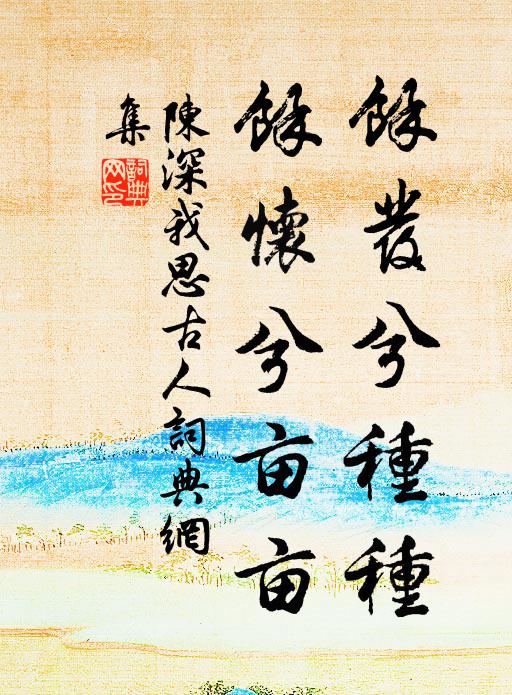 餘發兮種種
餘懷兮亩亩
陳深我思古人詞典網
集
詞典网印